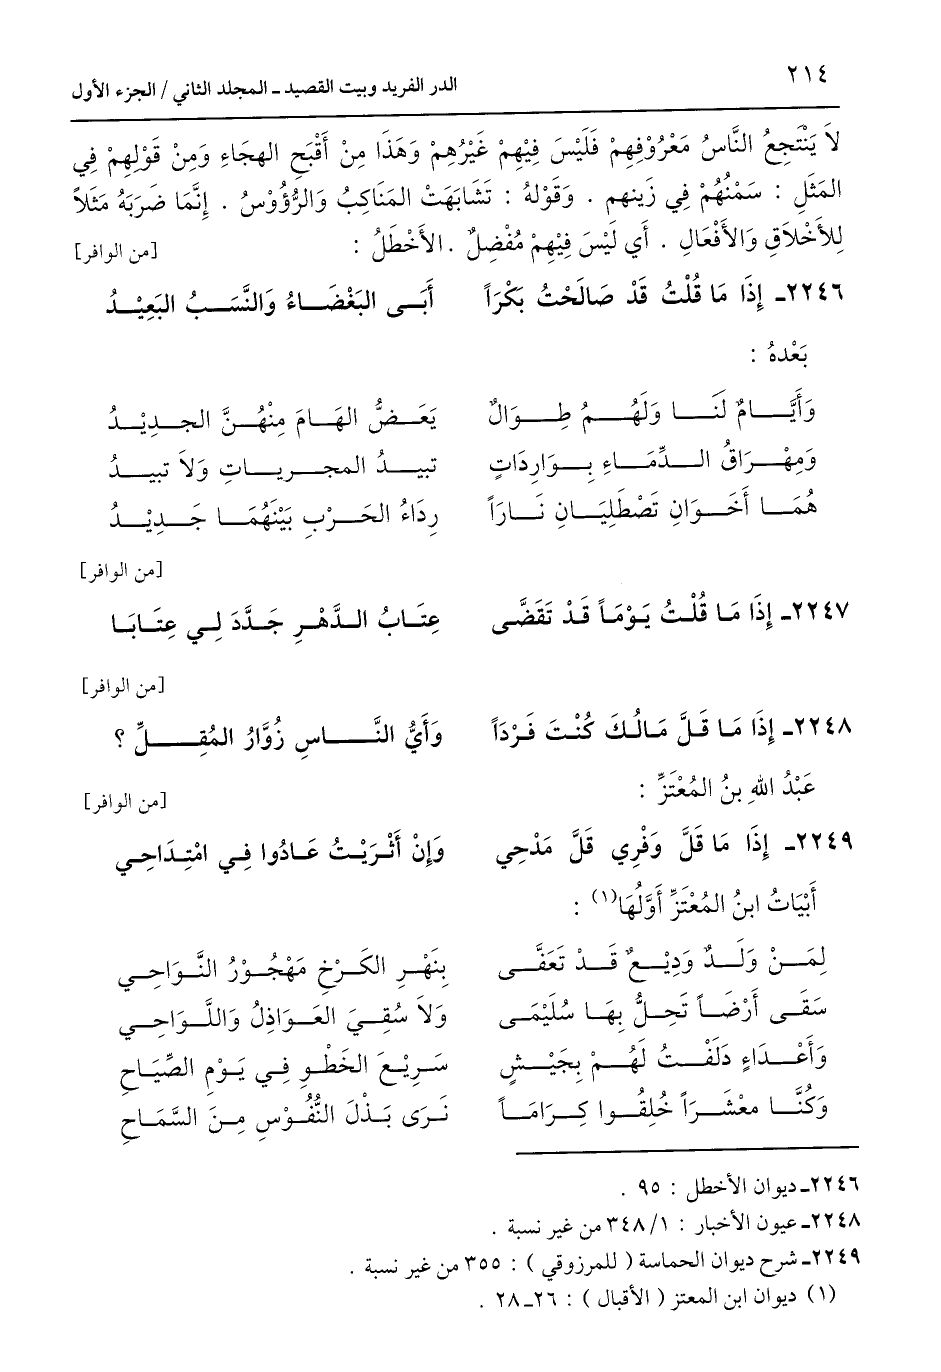 ٢١٤
الدر الفريد وبيت القصيد ـ المجلد الثاني / الجزء الأول
لاَ يَنْتَجِعُ النَّاسُ مَعْرُوْفِهِمْ فَلَيْسَ فِيْهِمْ غَيْرُهِمْ وَهَذَا مِنْ أَقْبَحِ الهِجَاءِ وَمِنْ قَوْلِهِمْ فِي
المَثَلِ : سَمْنُهُمْ فِي زَيتِهِم . وَقَوْلهُ : تَشَابَهَتْ المَنَاكِبُ وَالرُّؤُوْسُ . إِنَّمَا ضَرَبَهُ مَثَلاً
لِلأَخْلاَقِ وَالأَفْعَالِ . أَي لَيْسَ فِيْهِمْ مُفْضِلٌ . الأَخْطَلُ : [من الوافر]
٢٢٤٦ـ إِذَا مَا قُلْتُ قَدْ صَالَحْتُ بَكْرَاً أَبَى البَغْضَاءُ وَالنَّسَبُ البَعِيْدُ
بَعْدهُ :
وَأَيَّامٌ لَنَا وَلَهُمُ طِوَالٌ يَعَضُّ الهَامَ مِنْهُنَّ الحدِيْدُ
وَمِهْرَاقُ الدِّمَاءِ بِوَارِدَاتٍ تبيدُ المخزياتِ وَلاَ تبيدُ
هُمَا أَخَوَانِ تَصْطَلِيَانِ نَاراً رِدَاءُ الحَرْبِ بَيْنَهُمَا جَدِيْدُ
[من الوافر]
٢٢٤٧ـ إِذَا مَا قُلْتُ يَوْمَاً قَدْ تَقَضَّى عِتَابُ الدَّهْرِ جَدَّدَ لِي عِتَابَا
[من الوافر]
٢٢٤٨ـ إِذَا مَا قَلَّ مَالُكَ كُنْتَ فَرْدَاً وَأَيُّ النَّاسِ زُوَّارُ المُقِلِّ ؟
عَبْدُ اللهِ بنُ المُعْتَزِّ : [من الوافر]
٢٢٤٩ـ إِذَا مَا قَلَّ وَفْرِي قَلَّ مَدْحِي وَإِنْ أَثْرَيْتُ عَادُوا فِي امْتِدَاحِي
أَبْيَاتُ ابنُ المُعْتَزِّ أَوَّلُهَا(١) :
لِمَنْ وَلَدٌ وَدِيْعٌ قَدْ تَعَفَّى بِنَهْرِ الكَرْخِ مَهْجُوْرُ النَّوَاحِي
سَقَى أَرْضَاً تَحِلُّ بِهَا سُلَيْمَى وَلاَ سُقِيَ العَوَاذِلُ وَاللَّوَاحِي
وَأَعْدَاءٍ دَلَفْتُ لَهُمْ بِجَيْشٍ سَرِيْعَ الخَطْوِ فِي يَوْمِ الصِّيَاحِ
وَكُنَّا معْشَرَاً خُلِقُوا كِرَامَاً نَرَى بَذْلَ النُّفُوْسِ مِنَ السَّمَاحِ
٢٢٤٦ـ ديوان الأخطل : ٩٥ .
٢٢٤٨ـ عيون الأخبار : ١/ ٣٤٨ من غير نسبة .
٢٢٤٩ـ شرح ديوان الحماسة ( للمرزوقي ) : ٣٥٥ من غير نسبة .
(١) ديوان ابن المعتز ( الأقبال ) : ٢٦ـ٢٨ .